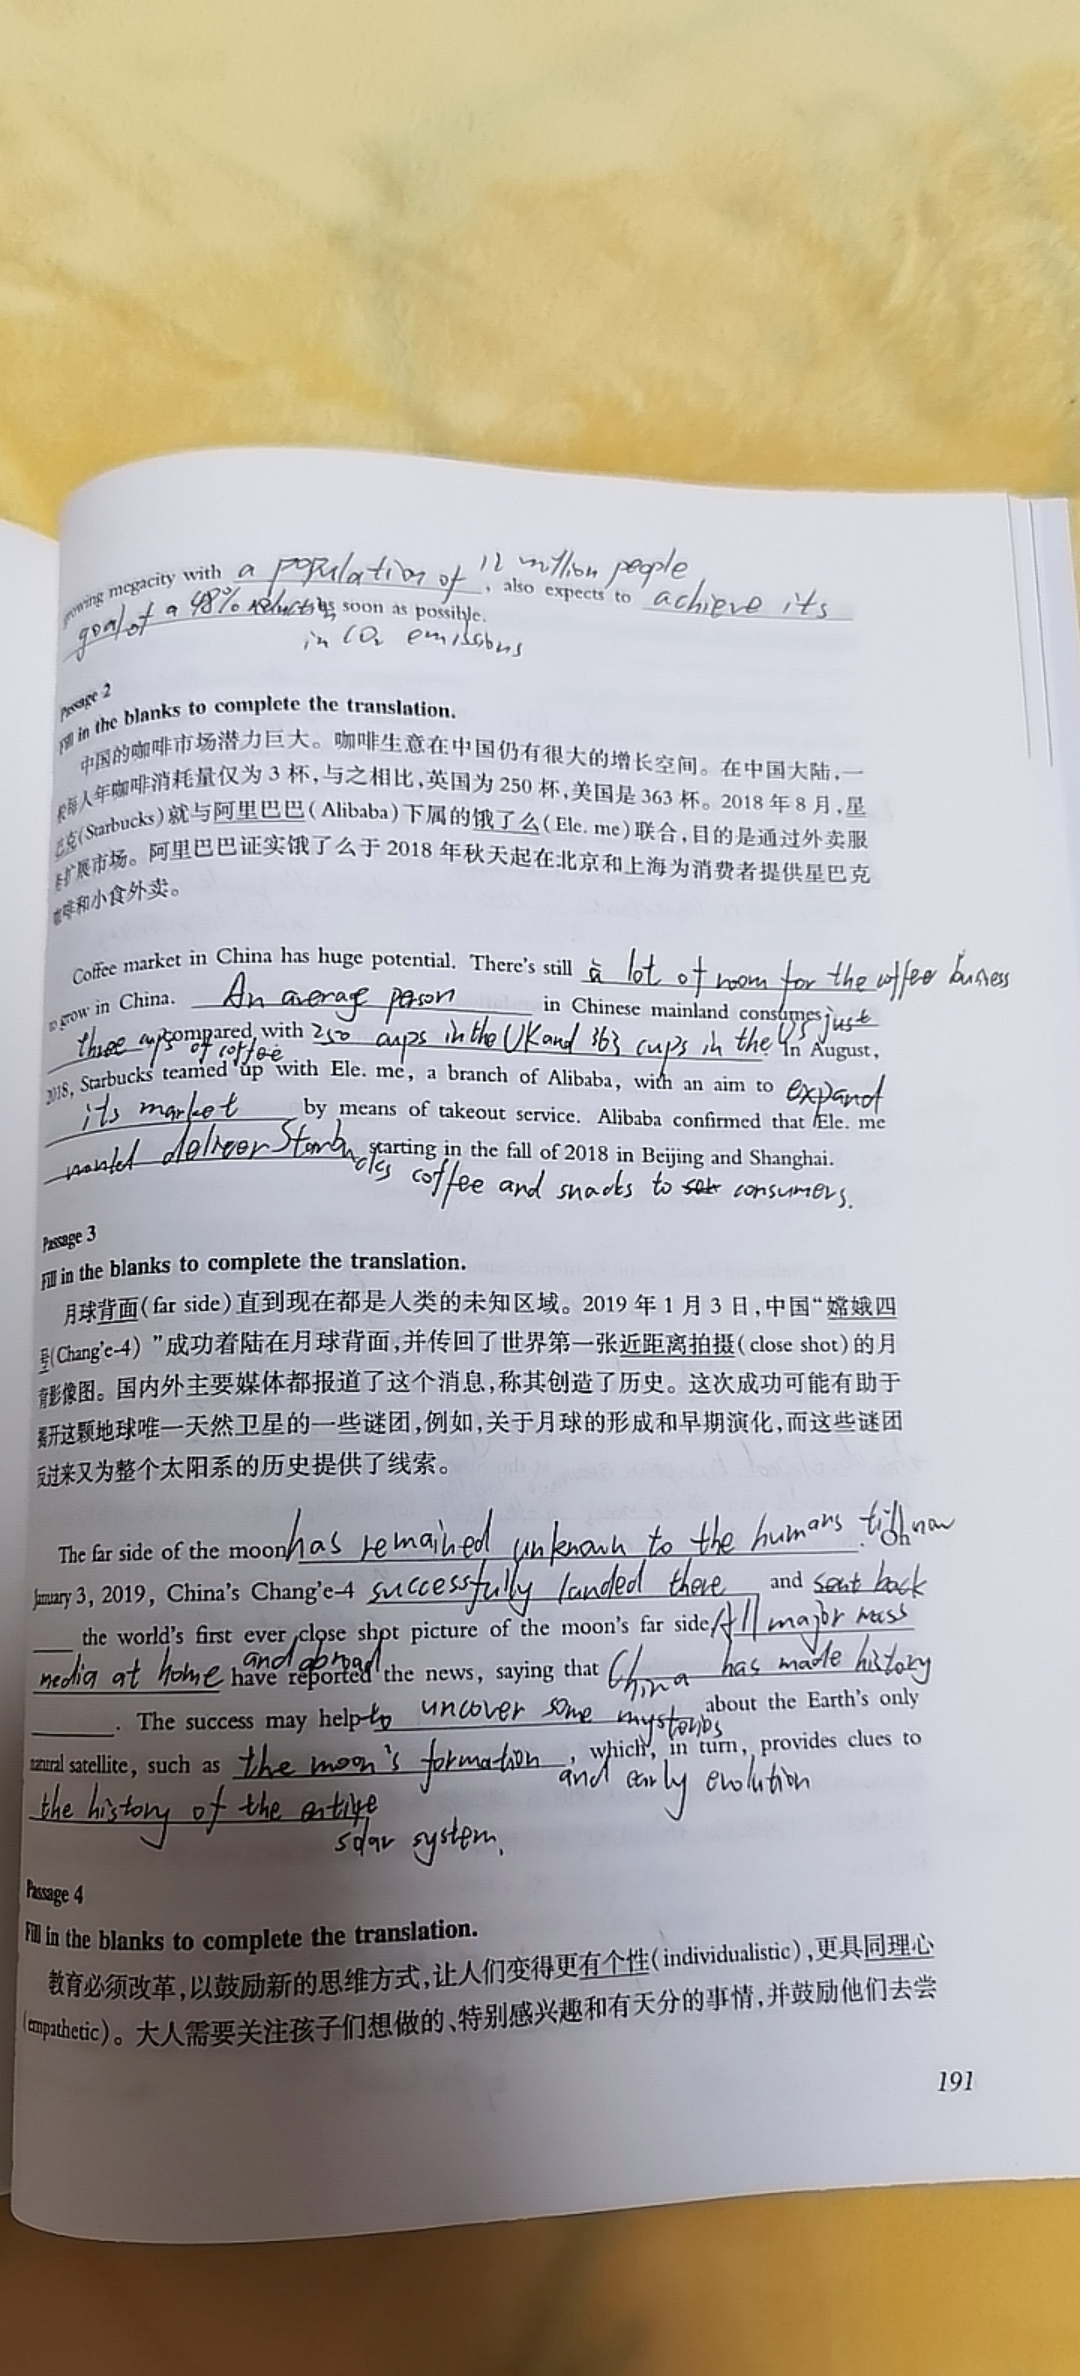 growing megacity with a population of 12 million people, also expects to achieve its
goal of a 48% reduction in CO2 emissions as soon as possible.
Passage 2
Fill in the blanks to complete the translation.
中国的咖啡市场潜力巨大。咖啡生意在中国仍有很大的增长空间。在中国大陆,一
般每人年咖啡消耗量仅为 3 杯,与之相比,英国为 250 杯,美国是 363 杯。2018 年 8 月,星
巴克(Starbucks)就与阿里巴巴(Alibaba)下属的饿了么(Ele. me)联合,目的是通过外卖服
务扩展市场。阿里巴巴证实饿了么于 2018 年秋天起在北京和上海为消费者提供星巴克
咖啡和小食外卖。
Coffee market in China has huge potential. There's still a lot of room for the coffee business
to grow in China. An average person in Chinese mainland consumes just
three cups of coffee compared with 250 cups in the UK and 363 cups in the US In August,
2018, Starbucks teamed up with Ele. me, a branch of Alibaba, with an aim to expand
its market by means of takeout service. Alibaba confirmed that Ele. me
would deliver Starbucks coffee and snacks to consumers. starting in the fall of 2018 in Beijing and Shanghai.
Passage 3
Fill in the blanks to complete the translation.
月球背面(far side)直到现在都是人类的未知区域。2019 年 1 月 3 日,中国“嫦娥四
号(Chang'e-4)”成功着陆在月球背面,并传回了世界第一张近距离拍摄(close shot)的月
背影像图。国内外主要媒体都报道了这个消息,称其创造了历史。这次成功可能有助于
揭开这颗地球唯一天然卫星的一些谜团,例如,关于月球的形成和早期演化,而这些谜团
反过来又为整个太阳系的历史提供了线索。
The far side of the moon has remained unknown to the humans till now. On
January 3, 2019, China's Chang'e-4 successfully landed there and sent back
the world's first ever close shot picture of the moon's far side. All major mass
media at home and abroad have reported the news, saying that China has made history
. The success may help to uncover some mysteries about the Earth's only
natural satellite, such as the moon's formation and early evolution, which, in turn, provides clues to
the history of the entire solar system.
Passage 4
Fill in the blanks to complete the translation.
教育必须改革,以鼓励新的思维方式,让人们变得更有个性(individualistic),更具同理心
(empathetic)。大人需要关注孩子们想做的、特别感兴趣和有天分的事情,并鼓励他们去尝
191